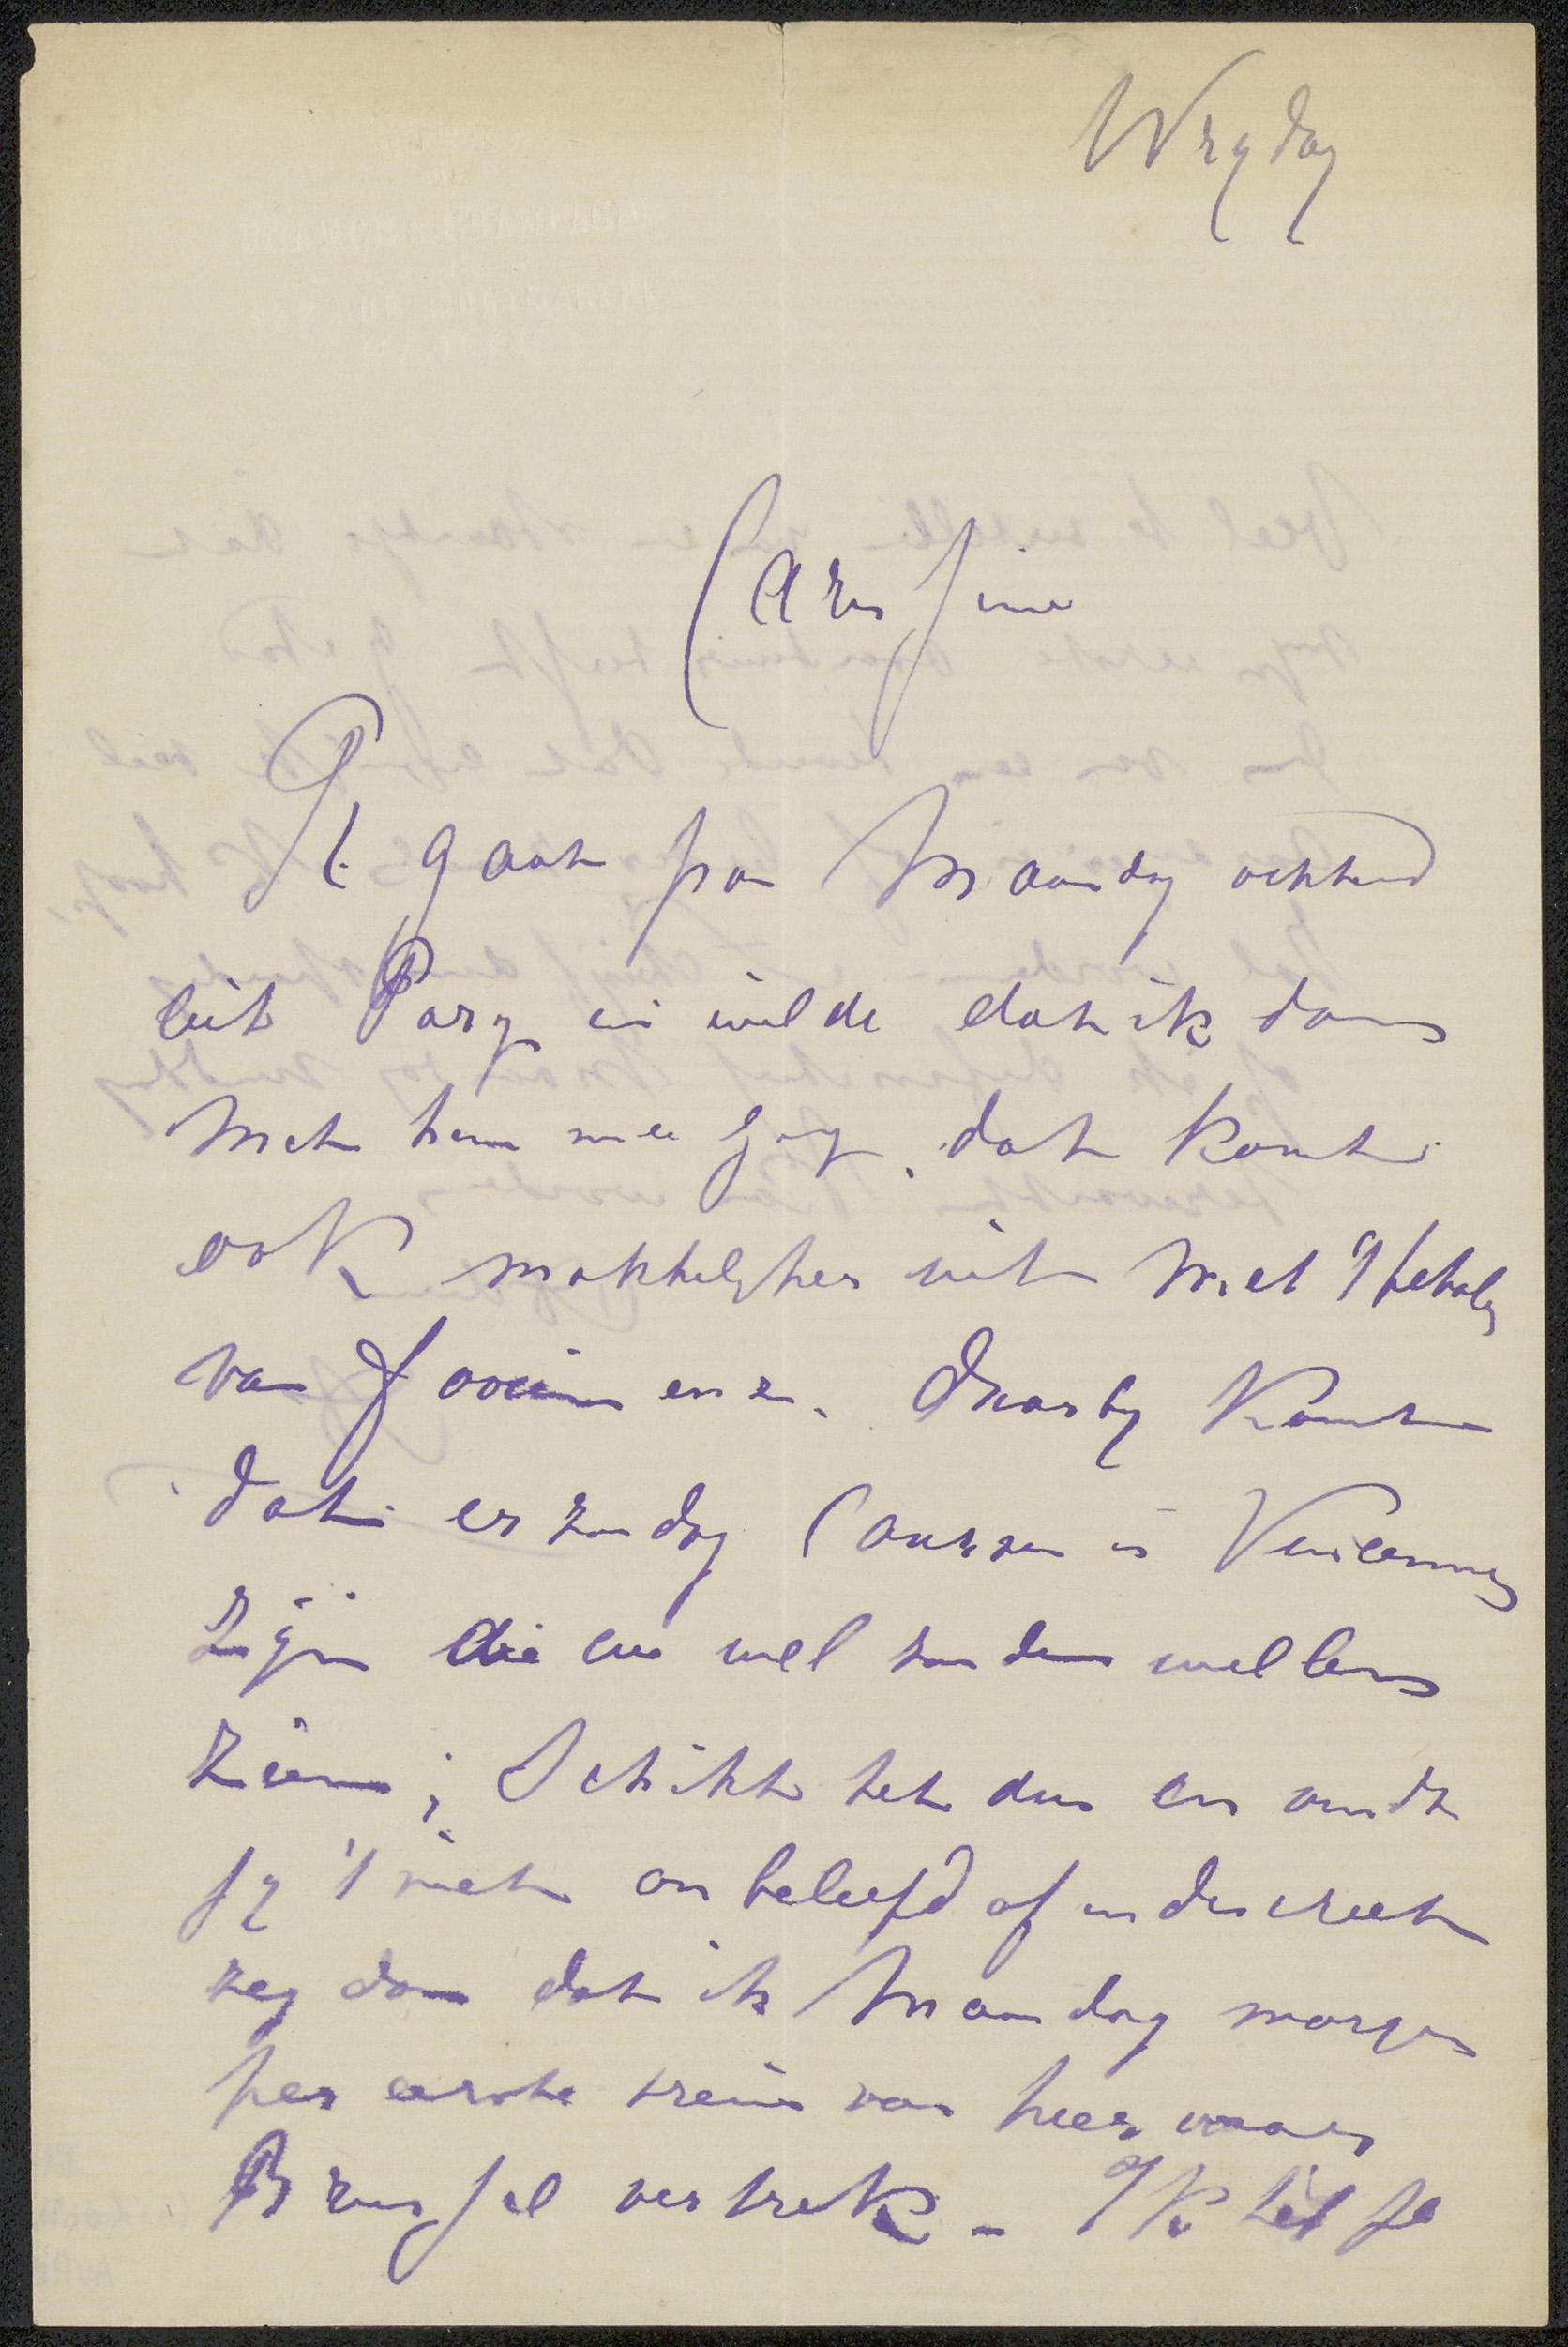 Vrydag
Carissime
R. gaat pas Maandag ochtend
uit Parijs en wilde dat ik dan
met hem mee ging, dat komt
ook makkelijker uit met 't betalen
van fooien enz. Daarby komt
dat er zondag Courses in Vincennes
zijn die we wel zouden willen
zien; Schikt het dus en vindt
jy 't niet onbeleefd of indiscreet
zeg dan dat ik Maandag morgen
per eerste trein van hier naar
Brussel vertrek – Ik heb je